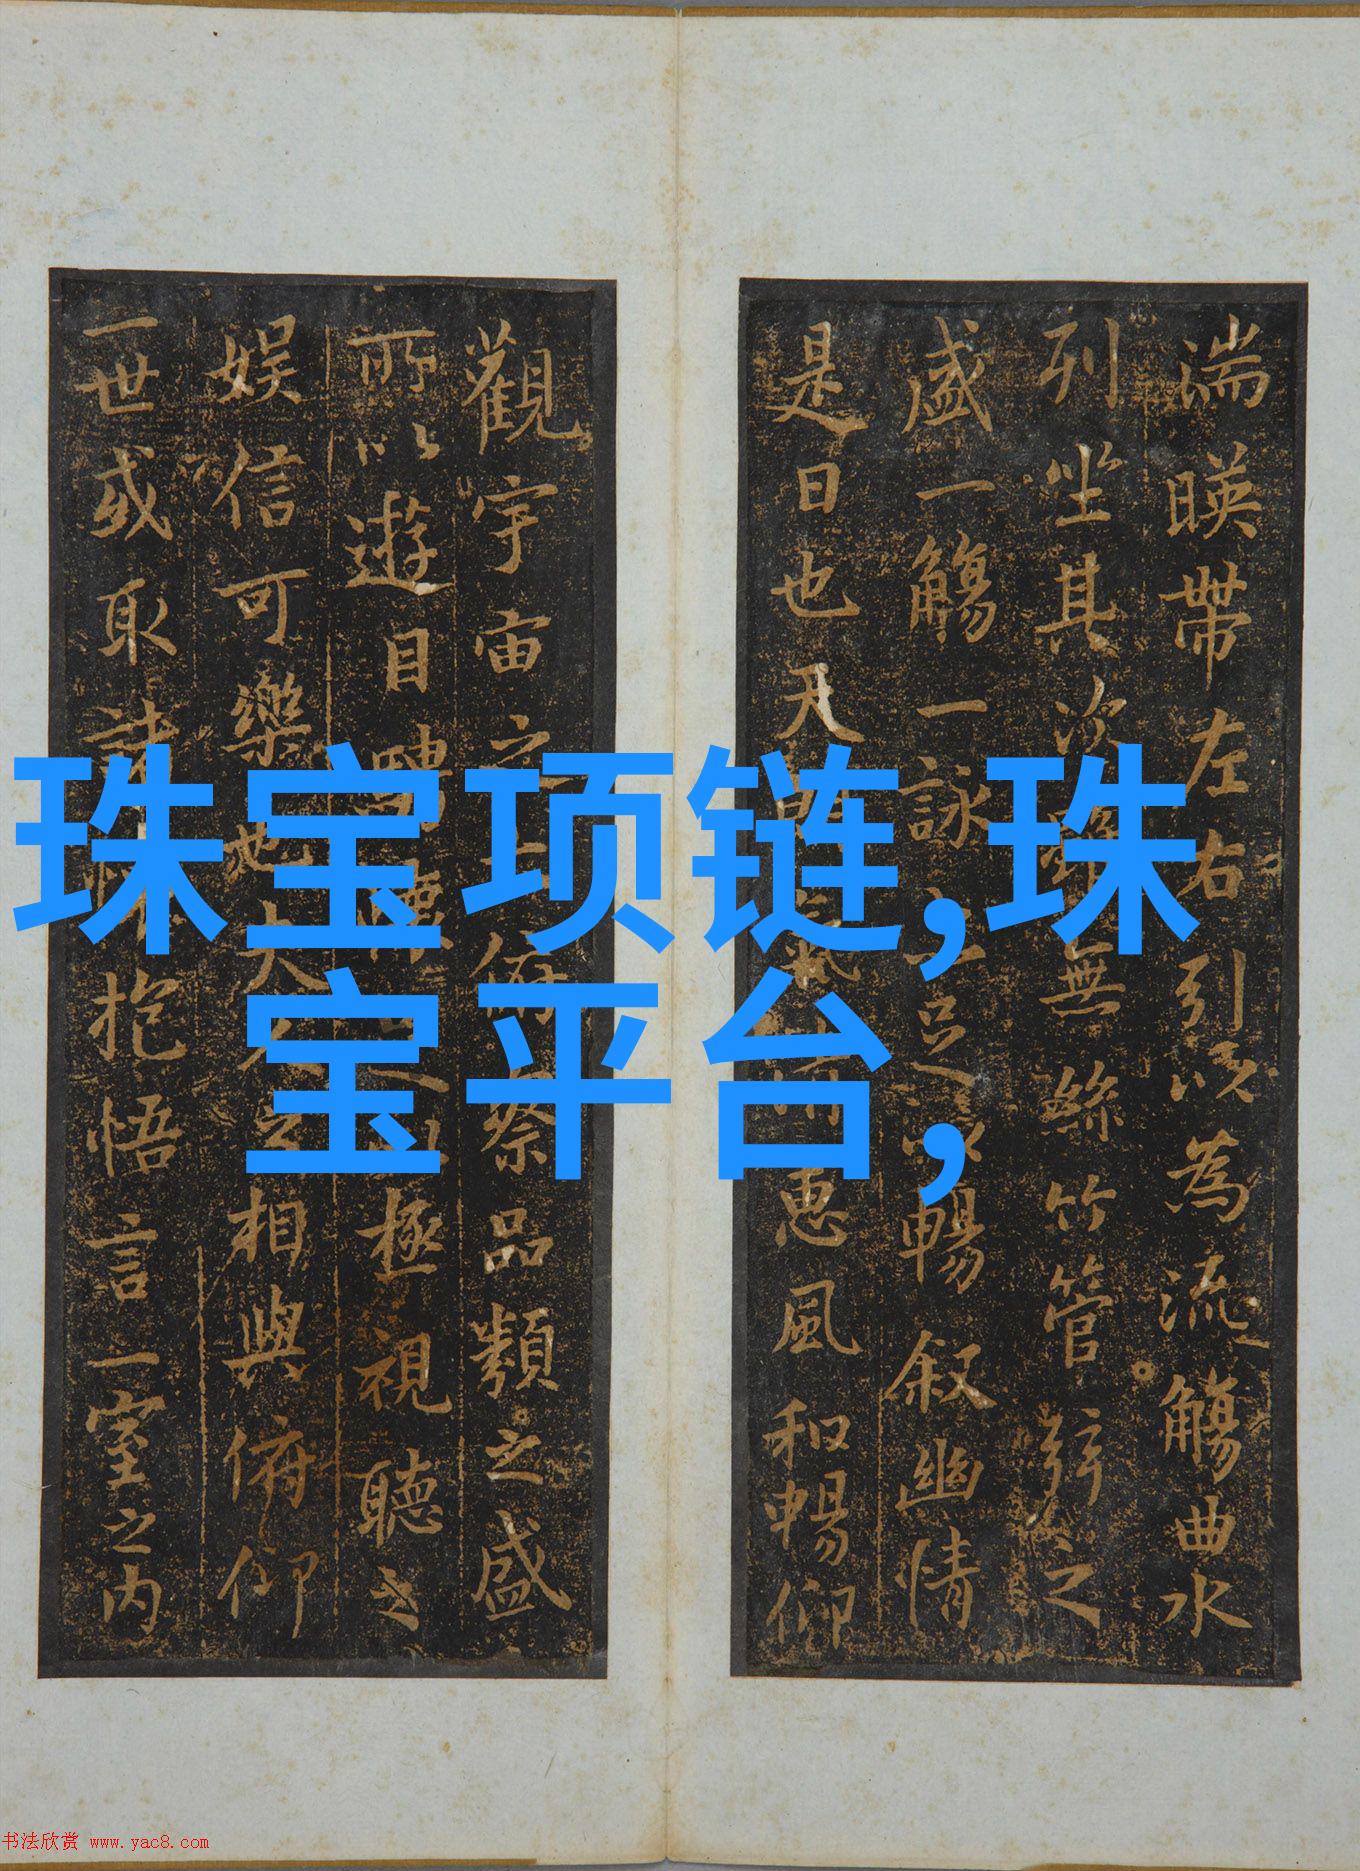 珠宝项链,珠
宝平台,
湍暎帶左右引以為流觴曲水
列坐其次無絲竹管弦之
盛一觴一詠足以暢叙幽情
是日也天惠風和暢仰
觀宇宙之俯察品類之盛
所以遊目騁極視聽之
娱信可樂也大人之相與俯仰
一世或取諸抱悟言一室之内
书法欣赏 www.yac8.com